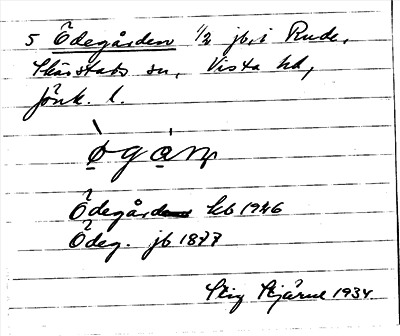 5 Ödegården 1/2 jb, i Rude,
Skärstads sn, Vista hd,
Jönk. l.
Ödegården kb 1946
Ödeg. jb 1877
Stig Stjärne 1934